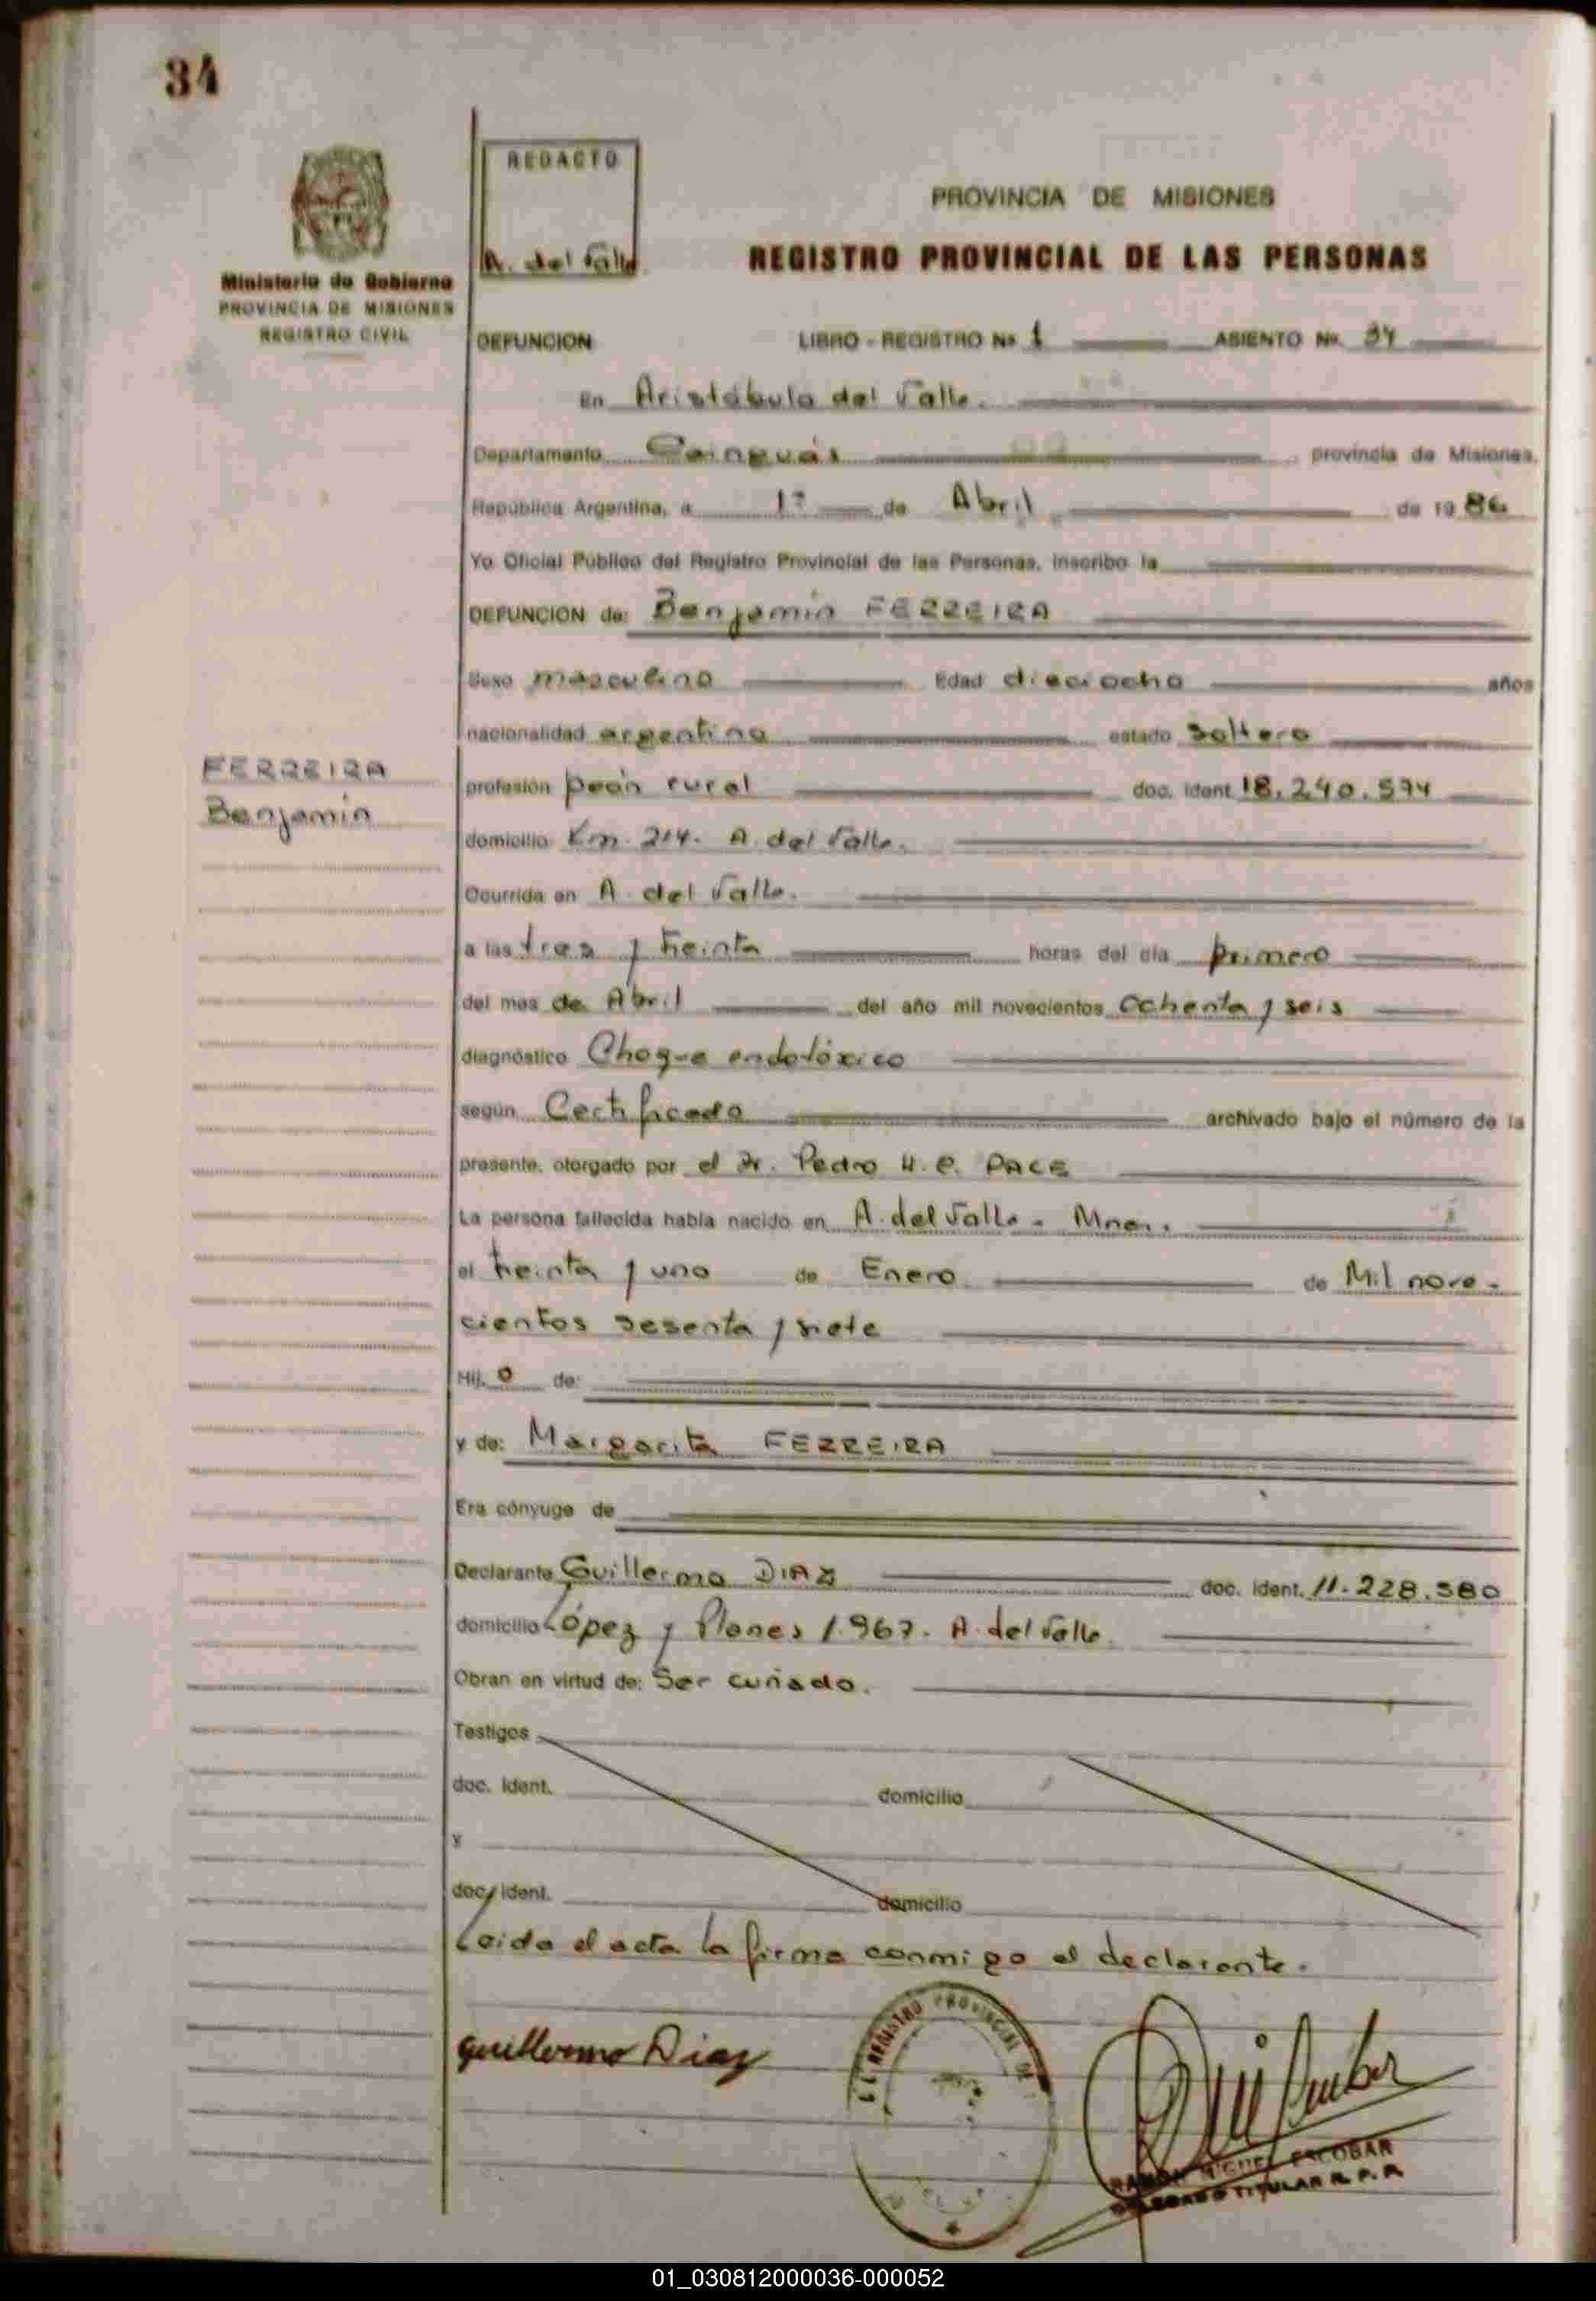 34
REDACTO
A. del Valle
PROVINCIA DE MISIONES
REGISTRO PROVINCIAL DE LAS PERSONAS
Ministerio de Gobierno
PROVINCIA DE MISIONES
REGISTRO CIVIL
DEFUNCION LIBRO - REGISTRO Nº 1 ASIENTO Nº. 34
En Aristóbulo del Valle.
Departamento Cainguás provincia de Misiones,
República Argentina, a 1º de Abril de 19 86
Yo Oficial Público del Registro Provincial de las Personas, inscribo la
DEFUNCION de: Benjamín FERREIRA
Sexo masculino Edad dieciocho años
nacionalidad argentino estado soltero
FERREIRA
Benjamín
profesión peón rural doc. ident. 18.240.574
domicilio Km. 214. A. del Valle.
Ocurrida en A. del Valle.
a las tres y treinta horas del día primero
del mes de Abril del año mil novecientos ochenta y seis
diagnóstico Choque endotóxico
según Certificado archivado bajo el número de la
presente, otorgado por el Dr. Pedro H. C. PACE
La persona fallecida había nacido en A. del Valle - Mnes.
el treinta y uno de Enero de Mil nove-
cientos sesenta y siete
Hij. o de:
y de: Margarita FERREIRA
Era cónyuge de
Declarante Guillermo DIAZ doc. ident. 11.228.580
domicilio López y Planes 1.967. A. del Valle.
Obran en virtud de: Ser cuñado.
Testigos
doc. ident. domicilio
y
doc. ident. domicilio
Leída el acta la firma conmigo el declarante.
Guillermo Diaz
REGISTRO PROVINCIAL DE
RAMON MIGUEL ESCOBAR
DELEGADO TITULAR R. P. P.
01_030812000036-000052